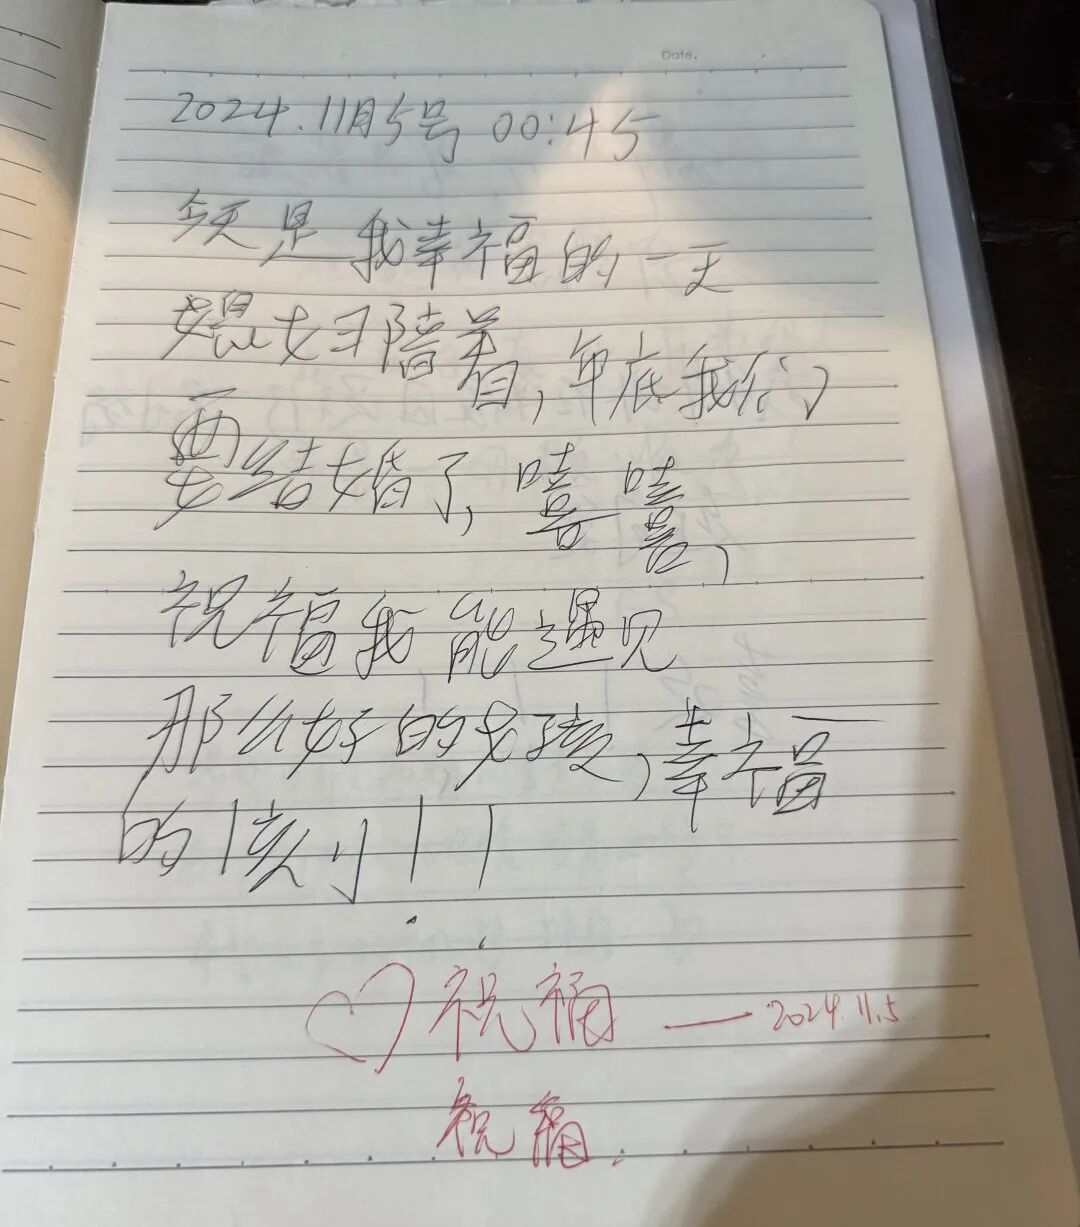 Date.
2024.11月5号 00:45
今天是我幸福的一天
媳妇陪着,年底我们
要结婚了,嘻嘻,
祝福我能遇见
那么好的女孩,幸福
的一刻!!
♡祝福——2024.11.5
祝福.